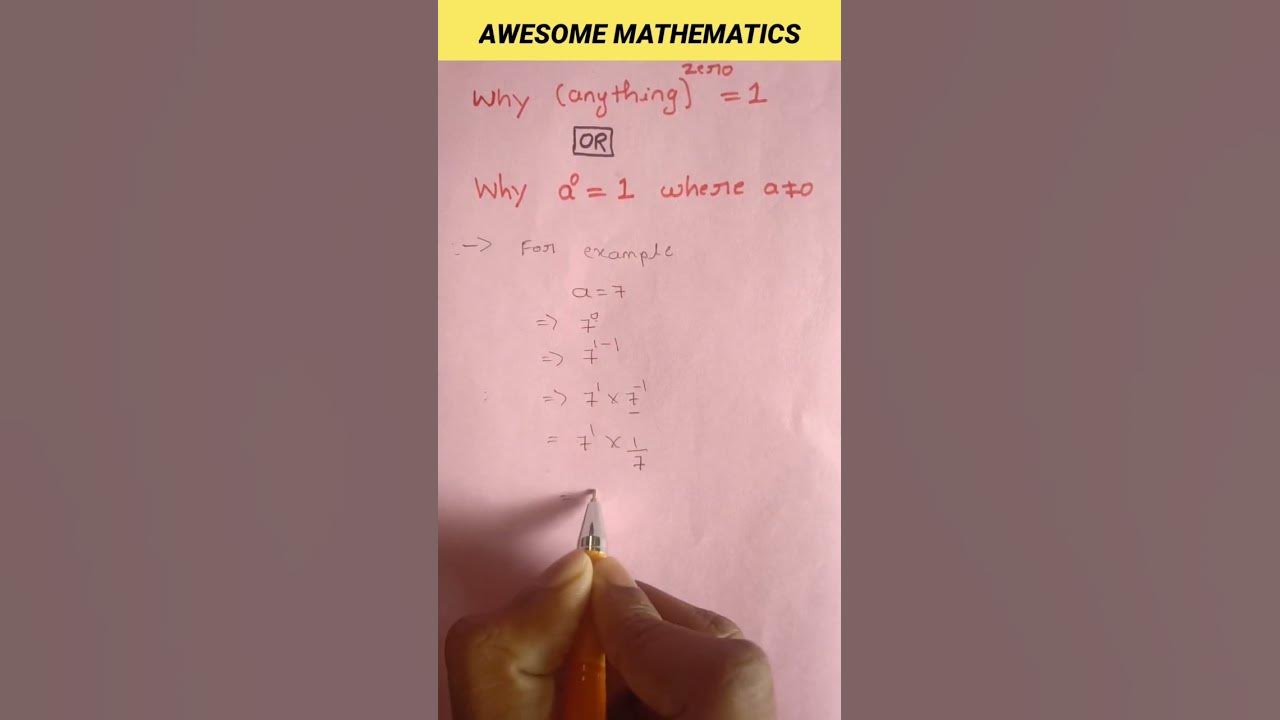 AWESOME MATHEMATICS
Why (anything)^zero = 1
OR
Why a⁰ = 1 where a≠0
:-> For example
a = 7
=> 7⁰
=> 7¹⁻¹
=> 7¹ × 7⁻¹
= 7¹ × 1/7
=